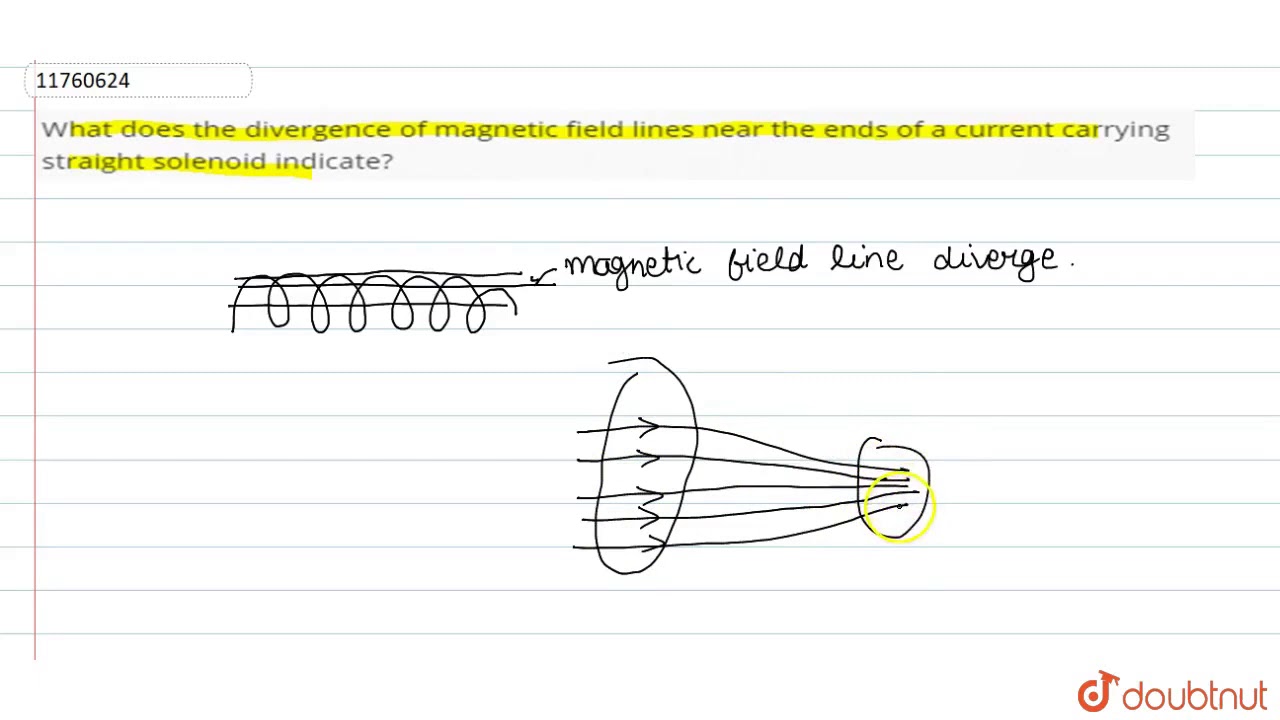 11760624
What does the divergence of magnetic field lines near the ends of a current carrying
straight solenoid indicate?
magnetic field line diverge.
doubtnut